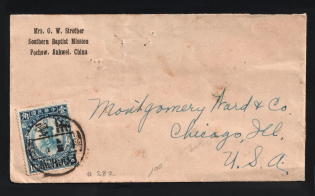 Mrs. G. W. Strother
Southern Baptist Mission
Pochow, Anhwei, China
Montgomery Ward & Co.
Chicago, Ill.
U. S. A.